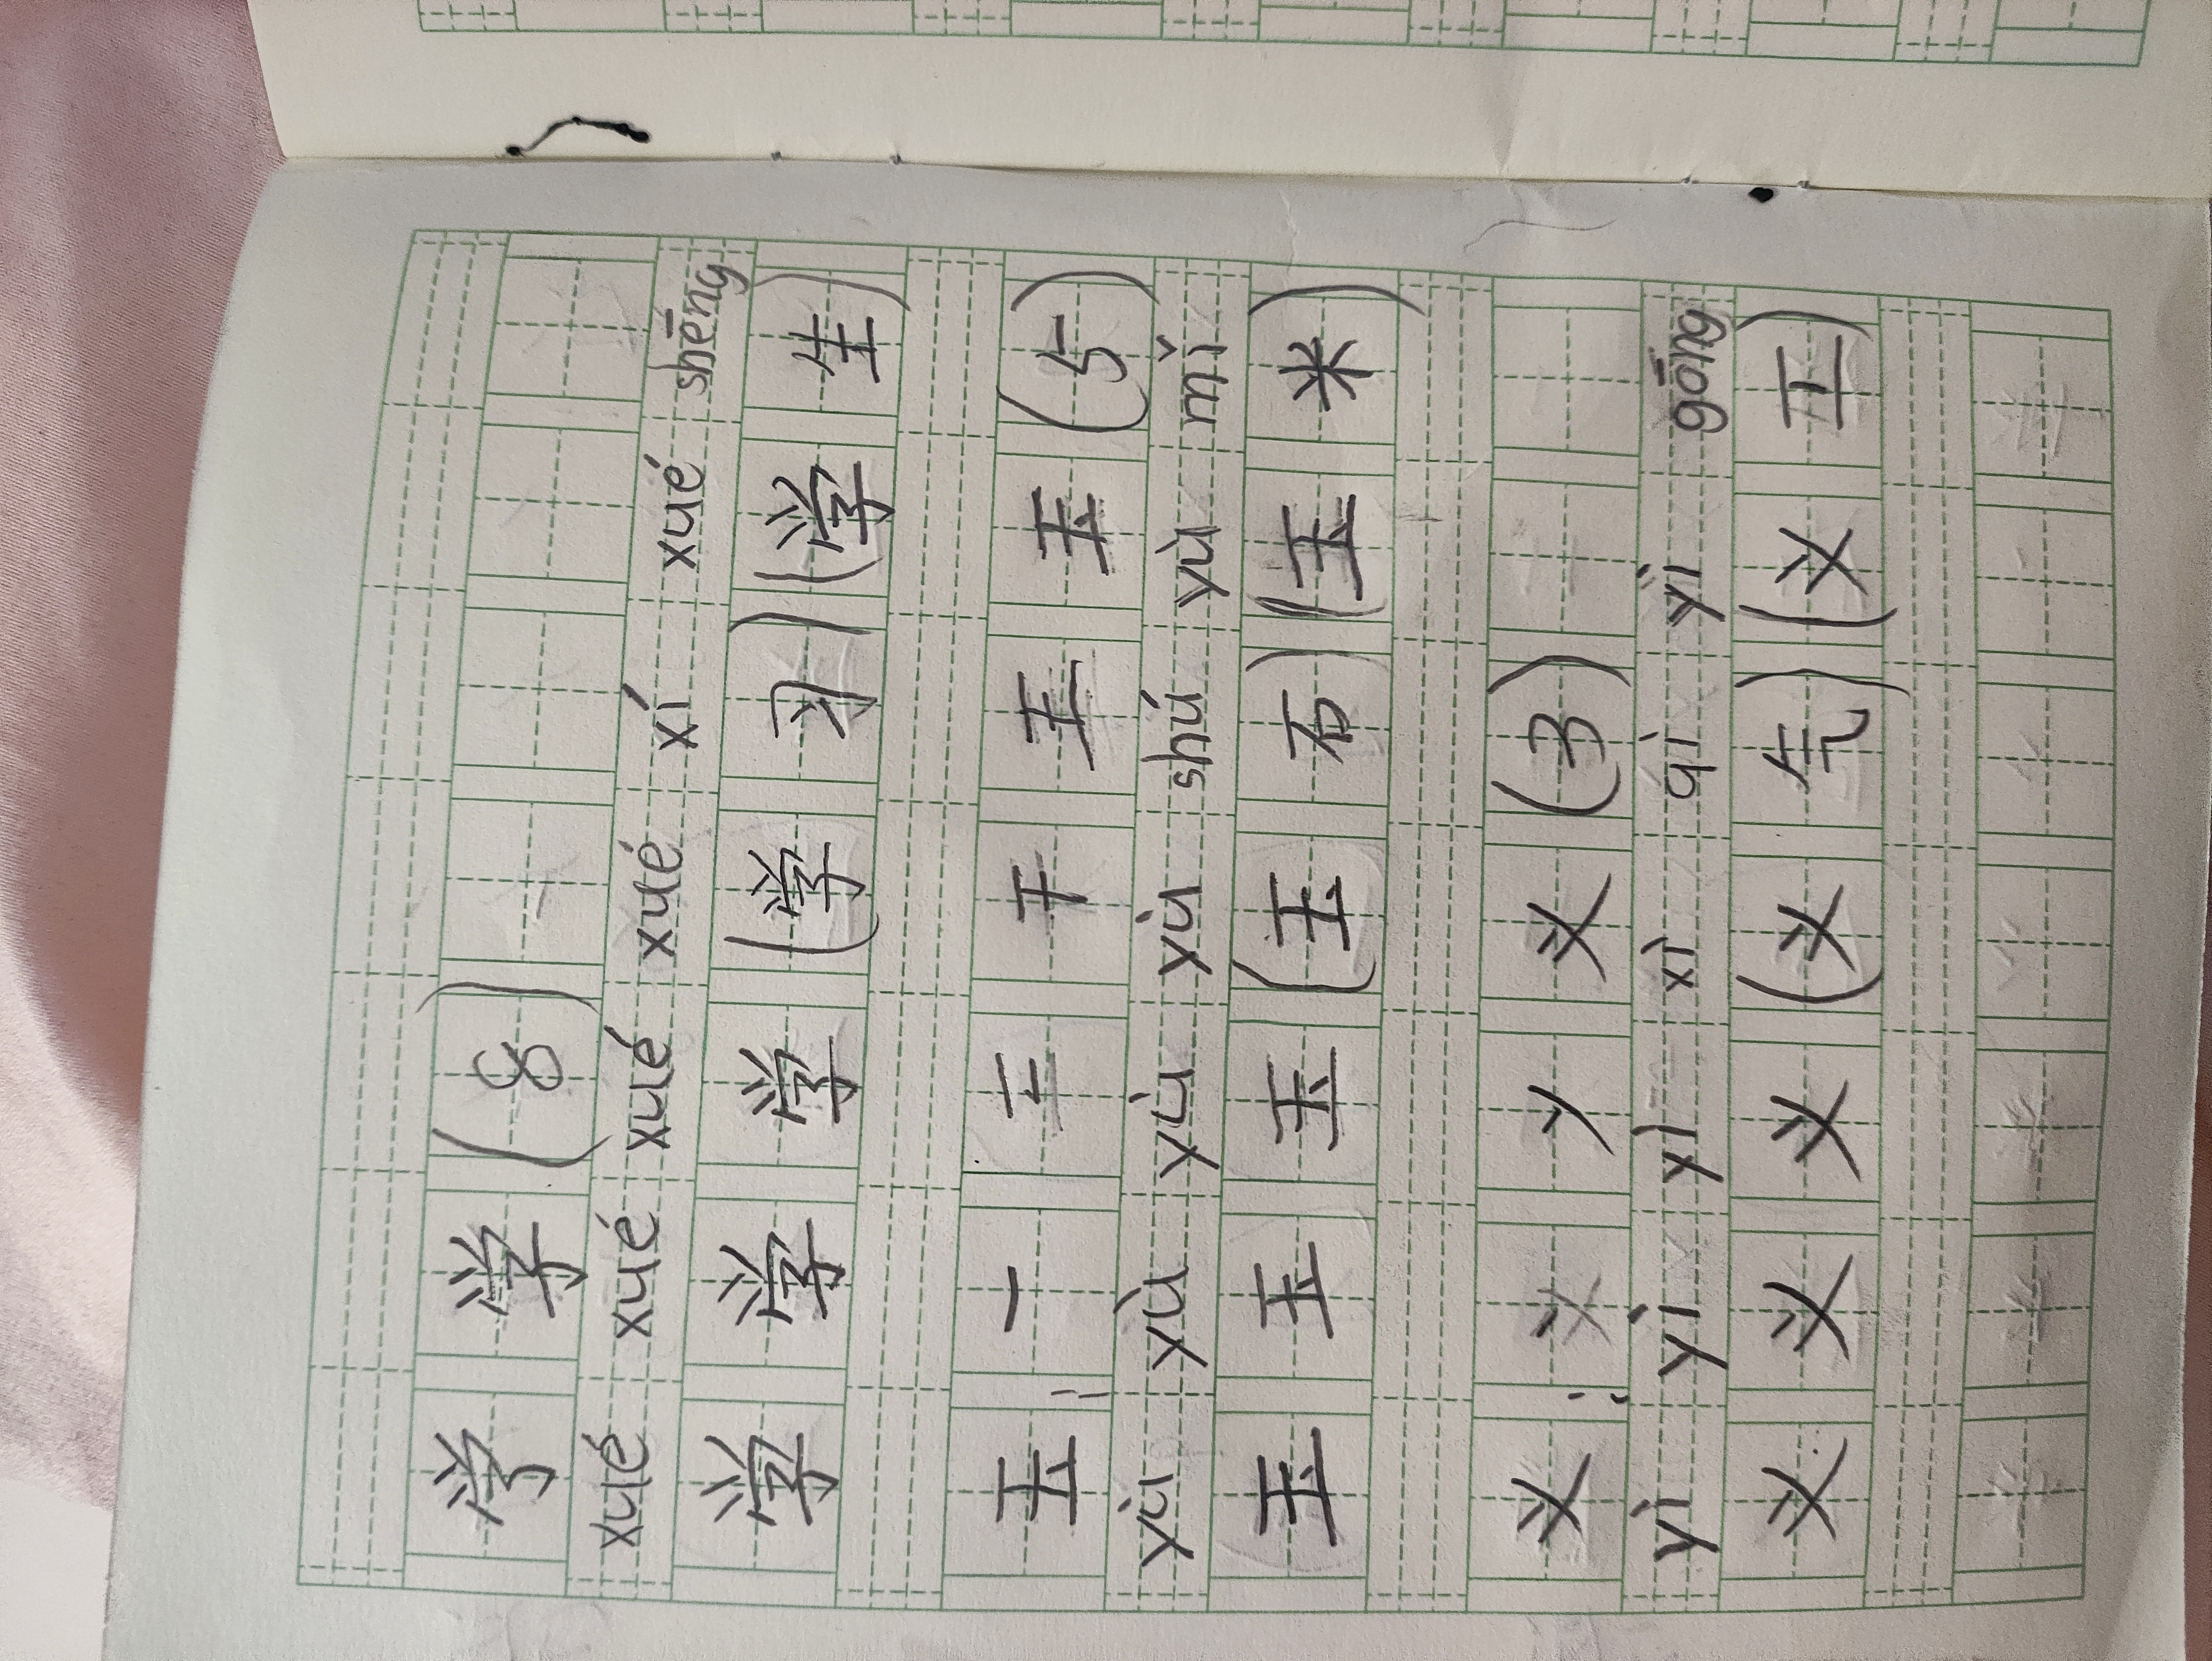 学 (8)
xué xué xué xué xí xué shēng
学 学 学 (学 习) (学 生)
玉: 一 二 干 王 玉 (5)
yù yù yù yù shú yù mǐ
玉 玉 玉 (玉 石) (玉 米)
义: 义 (3)
yì yì yì xì qì yì gōng
义 义 义 (义 气) (义 工)